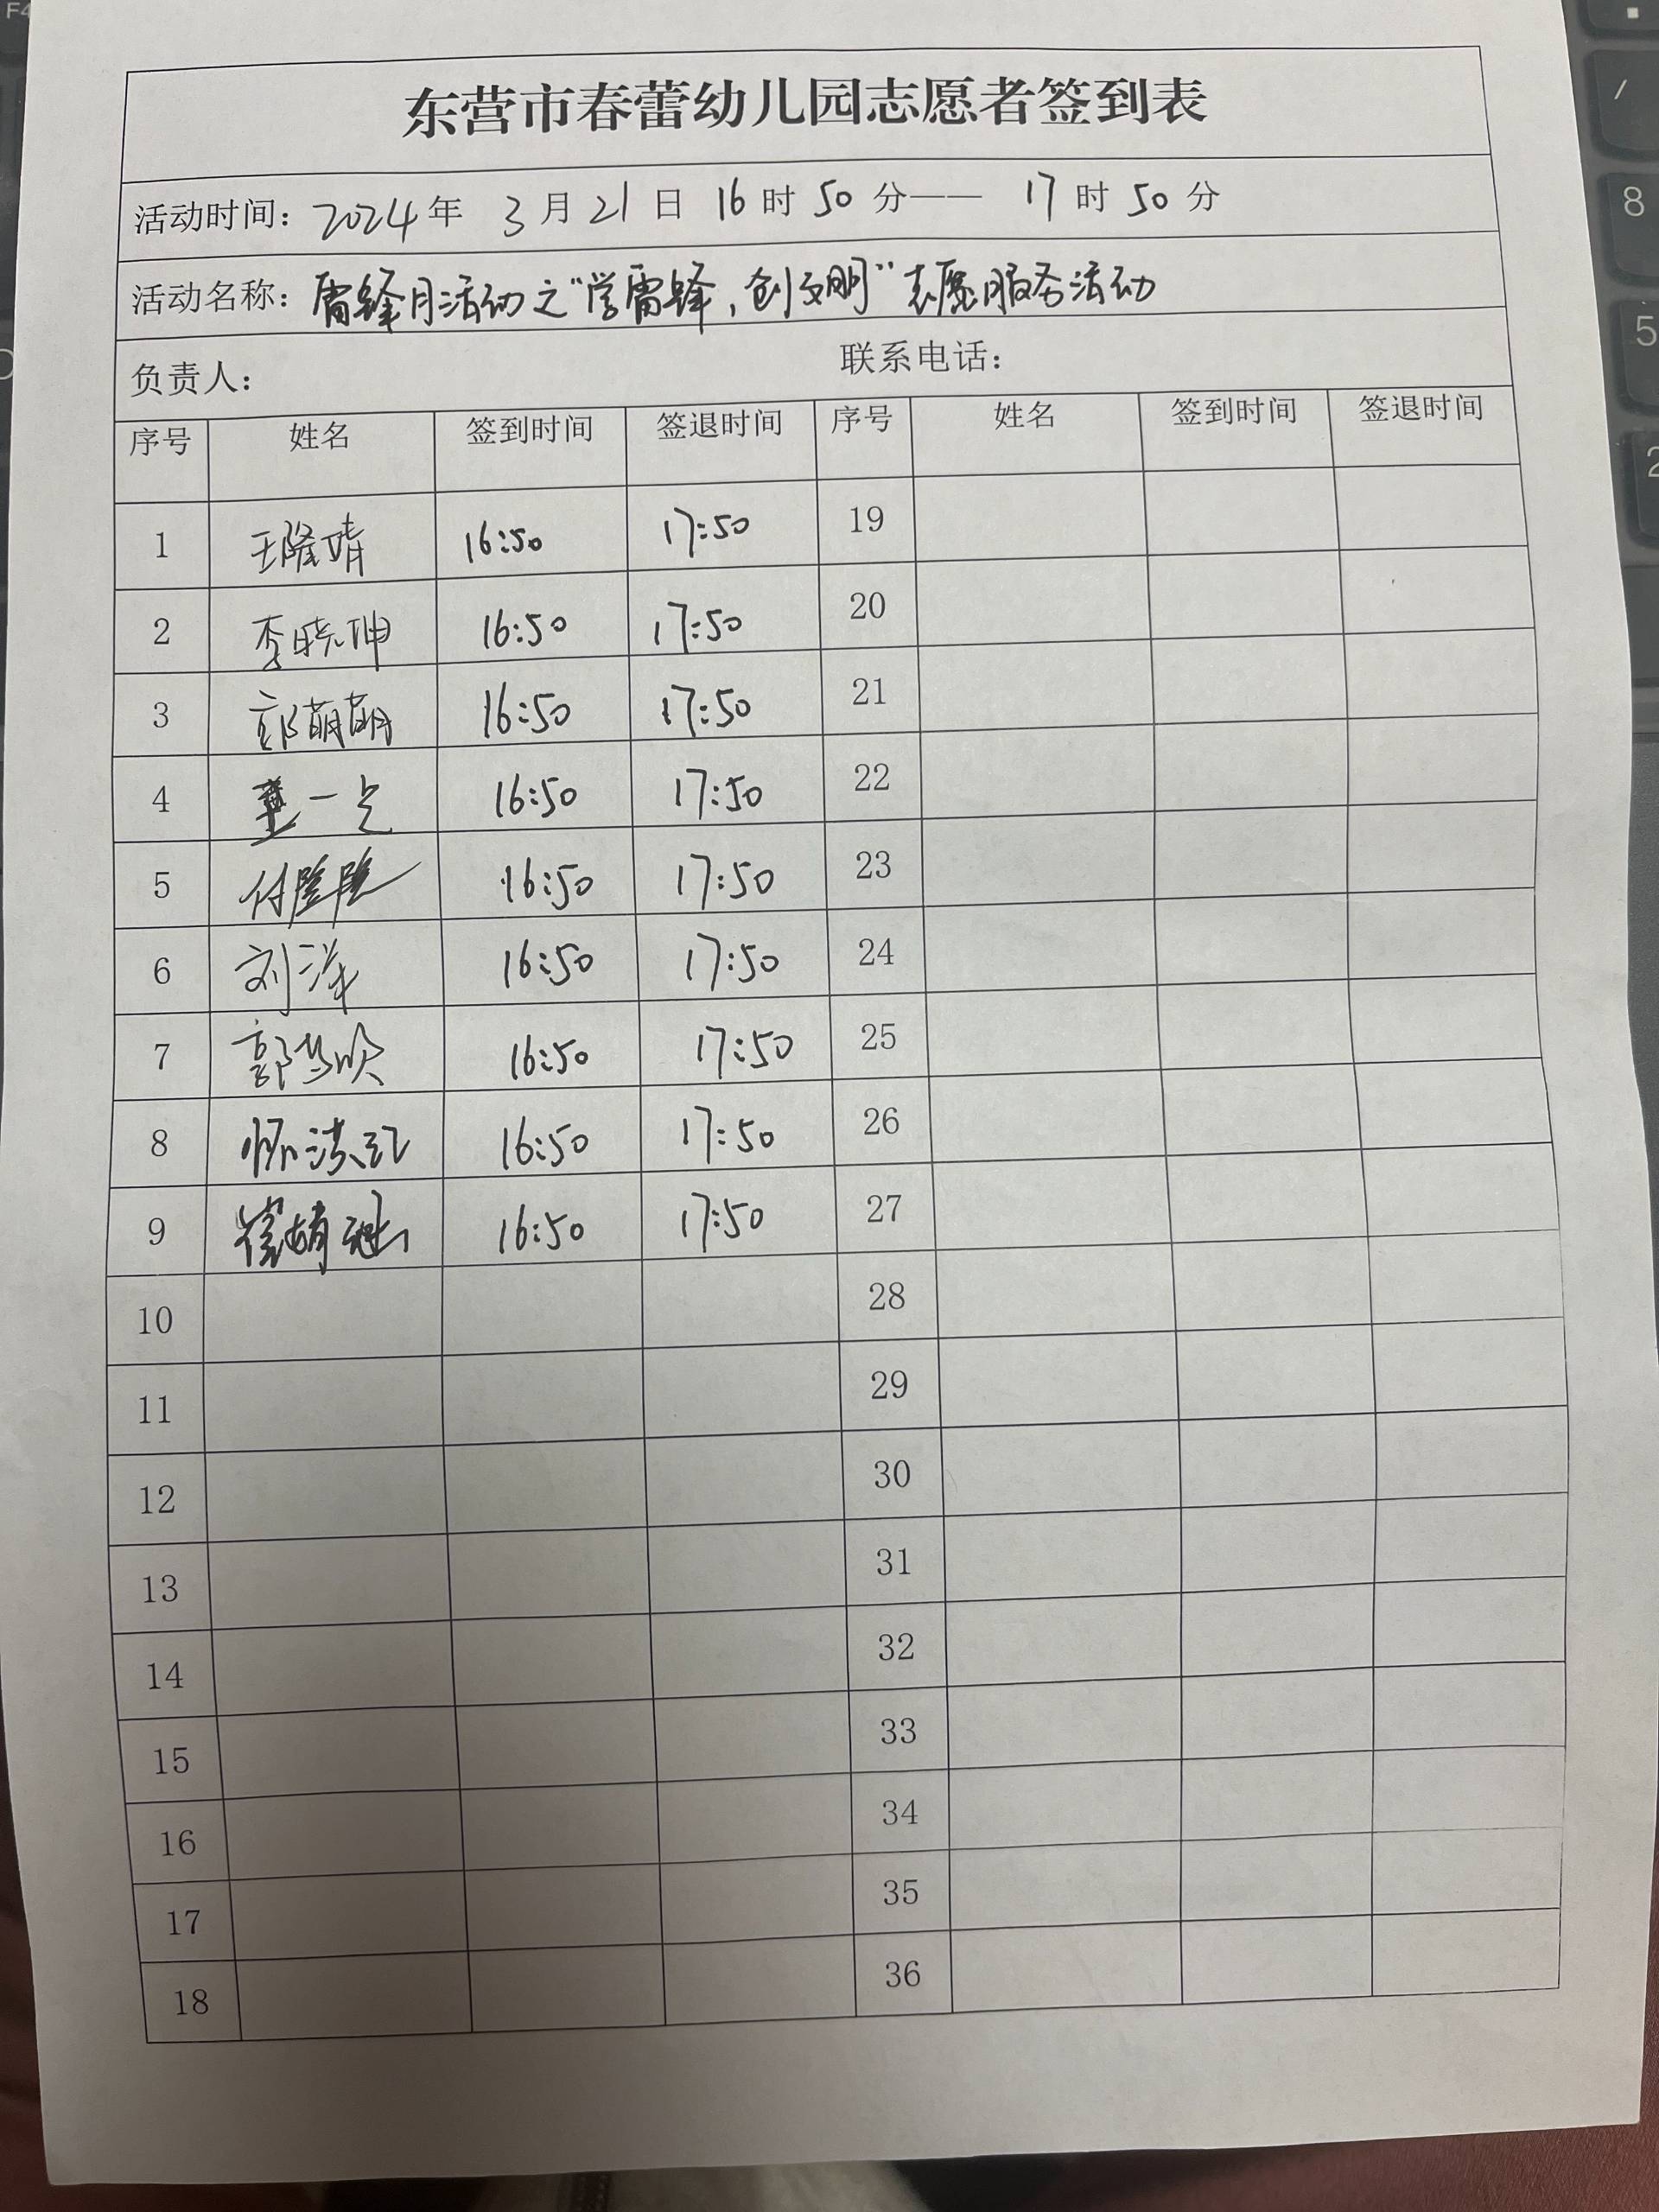 东营市春蕾幼儿园志愿者签到表
活动时间：2024年 3月21日 16时50分—— 17时50分
活动名称：雷锋月活动之“学雷锋，创文明”志愿服务活动
负责人： 联系电话：
序号 姓名 签到时间 签退时间 序号 姓名 签到时间 签退时间
1 王隆靖 16:50 17:50 19
2 李晓坤 16:50 17:50 20
3 郭萌萌 16:50 17:50 21
4 董一 16:50 17:50 22
5 付 16:50 17:50 23
6 刘洋 16:50 17:50 24
7 郭梦欣 16:50 17:50 25
8 16:50 17:50 26
9 崔 16:50 17:50 27
10 28
11 29
12 30
13 31
14 32
15 33
16 34
17 35
18 36
F4
/
8
5
2